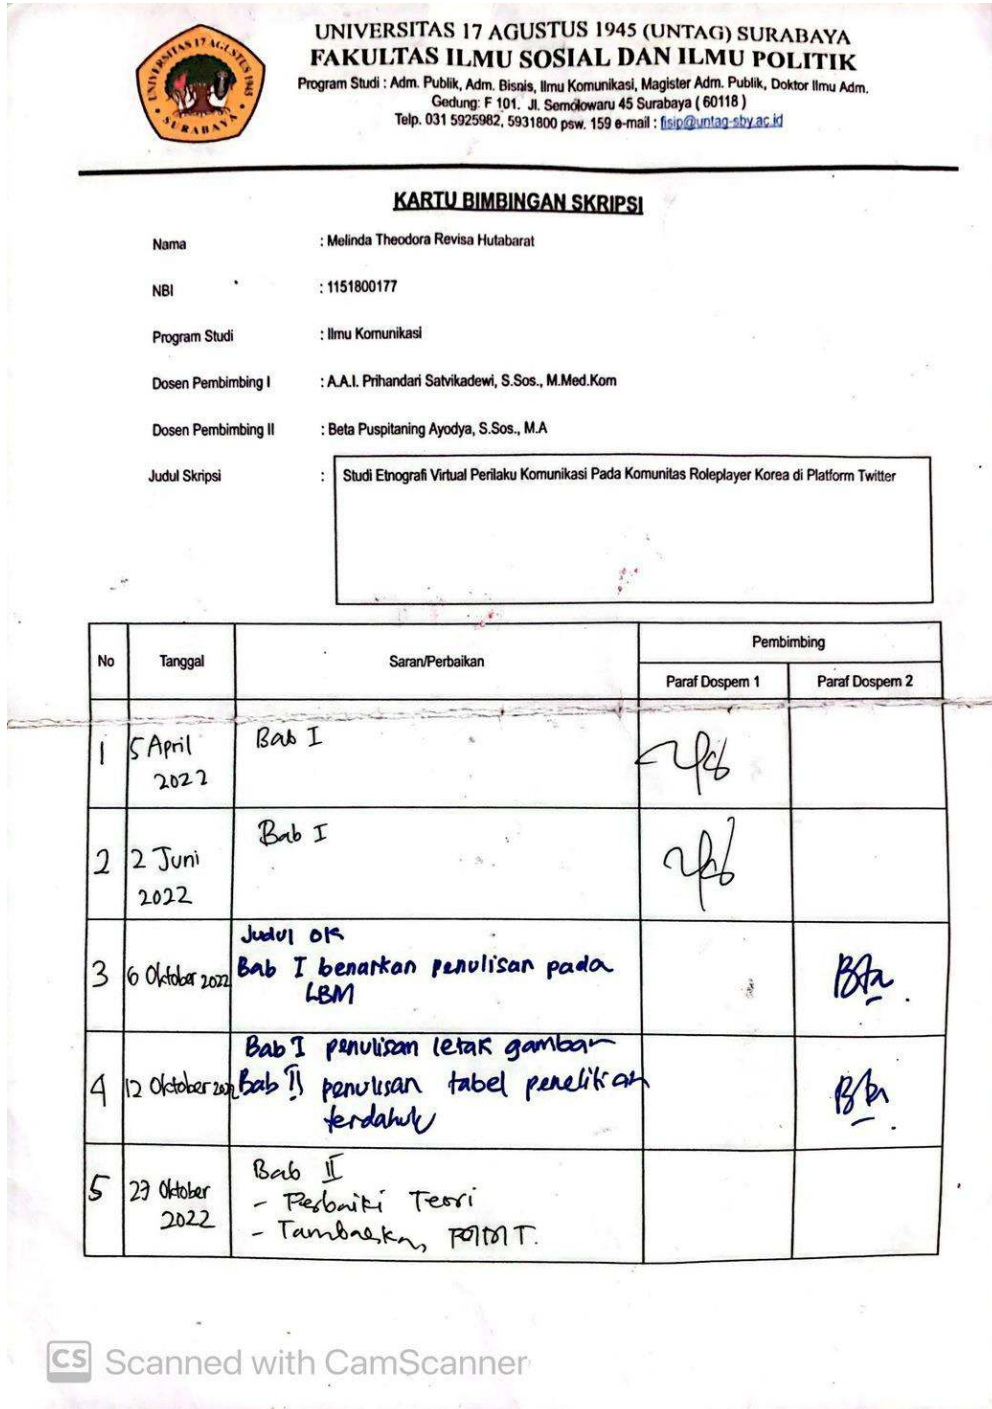 UNIVERSITAS 17 AGUSTUS 1945
SURABAYA
UNIVERSITAS 17 AGUSTUS 1945 (UNTAG) SURABAYA
FAKULTAS ILMU SOSIAL DAN ILMU POLITIK
Program Studi : Adm. Publik, Adm. Bisnis, Ilmu Komunikasi, Magister Adm. Publik, Doktor Ilmu Adm.
Gedung: F 101. Jl. Semolowaru 45 Surabaya ( 60118 )
Telp. 031 5925982, 5931800 psw. 159 e-mail : fisip@untag-sby.ac.id
KARTU BIMBINGAN SKRIPSI
Nama : Melinda Theodora Revisa Hutabarat
NBI : 1151800177
Program Studi : Ilmu Komunikasi
Dosen Pembimbing I : A.A.I. Prihandari Satvikadewi, S.Sos., M.Med.Kom
Dosen Pembimbing II : Beta Puspitaning Ayodya, S.Sos., M.A
Judul Skripsi : Studi Etnografi Virtual Perilaku Komunikasi Pada Komunitas Roleplayer Korea di Platform Twitter
No Tanggal Saran/Perbaikan Pembimbing
Paraf Dospem 1 Paraf Dospem 2
1 5 April Bab I
2022
2 2 Juni Bab I
2022
Judul OK
3 6 Oktober 2022 Bab I benarkan penulisan pada
LBM
Bab I penulisan letak gambar
4 12 Oktober 2022 Bab II penulisan tabel penelitian
terdahulu
5 27 Oktober Bab II
2022 - Perbaiki Teori
- Tambahkan
CS Scanned with CamScanner